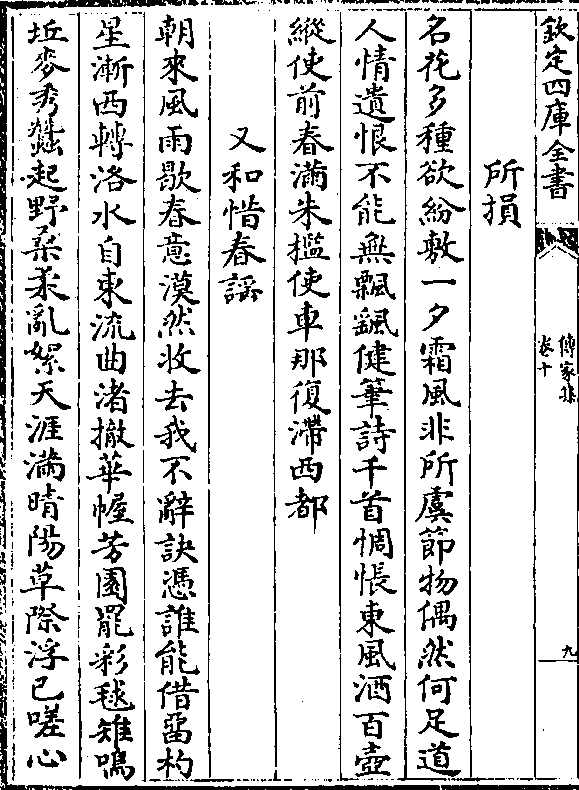 欽定四庫全書
傳家集
卷十
九
所損
名花多種欲紛敷一夕霜風非所虞節物偶然何足道
人情遺恨不能無飄颻健筆詩千首惆悵東風酒百壺
縱使前春滿朱檻使車那復滯西都
又和惜春謡
朝來風雨歇春意漠然收去我不辭訣憑誰能借畱杓
星漸西轉洛水自東流曲渚撤華幄芳園罷彩毬雉鳴
丘麥秀蠶起野桑柔亂絮天涯滿晴陽草際浮已嗟心